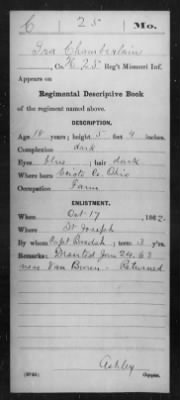 C 25 Mo.
Ira Chamberlain
, Co. K, 25 Reg't Missouri Inf.
Appears on
Regimental Descriptive Book
of the regiment named above.
DESCRIPTION.
Age 18 years; height 5 feet 4 inches.
Complexion dark
Eyes blue; hair dark
Where born Scioto Co, Ohio
Occupation Farm
ENLISTMENT.
When Oct 17, 1862.
Where St Joseph
By whom Capt ; term 3 y'rs.
Remarks: Deserted Jan 24. 63
near Van Buren - Returned
Ashley
Copyist.